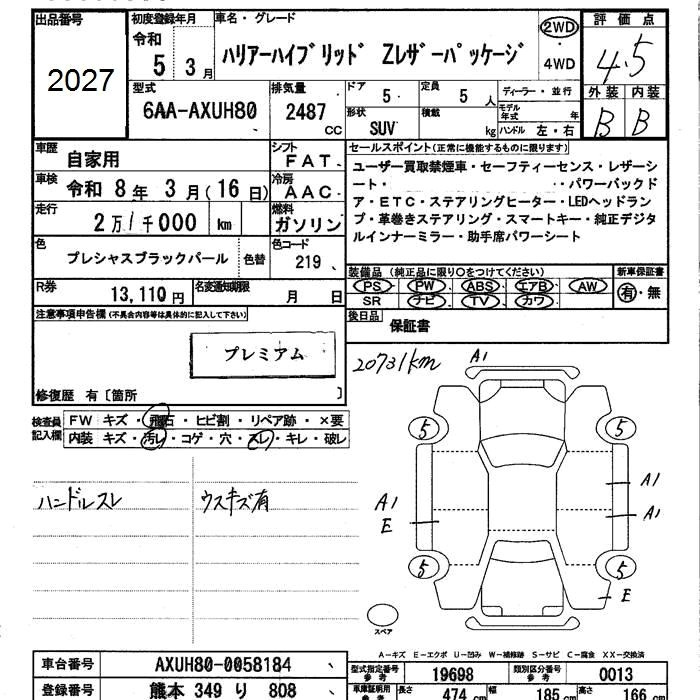 出品番号
2027
初度登録年月
令和
5年 3月
車名・グレード
ハリアーハイブリッド Zレザーパッケージ
2WD
・
4WD
評価点
4.5
外装 内装
B B
型式
6AA-AXUH80
排気量
2487
CC
ドア
5
定員
5 人
形状
SUV
積載
kg
ディーラー・並行
モデル年式 年
ハンドル 左・右
車歴
自家用
シフト
FAT
車検
令和 8年 3月(16日)
冷房
AAC
走行
2万1千000 km
燃料
ガソリン
色
プレシャスブラックパール
色替
色コード
219
R券
13,110円
名変通知期限
月 日
セールスポイント(正常に機能するものに限ります)
ユーザー買取禁煙車・セーフティーセンス・レザーシ
ート・ ・・パワーバックド
ア・ETC・ステアリングヒーター・LEDヘッドラン
プ・革巻きステアリング・スマートキー・純正デジタ
ルインナーミラー・助手席パワーシート
装備品(純正品に限り○をつけてください)
PS・PW・ABS・エアB・AW
SR・ナビ・TV・カワ・
新車保証書
有・無
後日品
保証書
注意事項申告欄(不具合内容等は具体的に記入して下さい)
プレミアム
修復歴 有〔箇所 〕
検査員記入欄
FW キズ・飛石・ヒビ割・リペア跡・×要
内装 キズ・汚レ・コゲ・穴・スレ・キレ・破レ
ハンドルスレ
ウスキズ有
20731km
A1
5
5
A1
E
A1
A1
5
5
E
スペア
A-キズ E-エクボ U-凹み W-補修跡 S-サビ C-腐食 XX-交換済
車台番号
AXUH80-0058184
登録番号
熊本 349 り 808
型式指定番号
参考
19698
類別区分番号
参考
0013
車庫証明用
参考
長さ
474 cm
幅
185 cm
高さ
166 cm